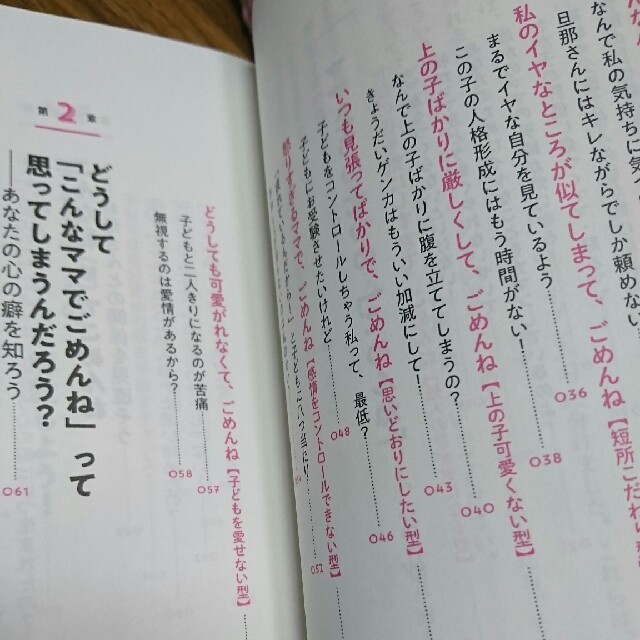 なんで私の気持ちに気
旦那さんにはキレながらでしか頼めない
私のイヤなところが似てしまって、ごめんね【短所こだわ
まるでイヤな自分を見ているよう……036
この子の人格形成にはもう時間がない!……038
上の子ばかりに厳しくして、ごめんね【上の子可愛くない型】……040
なんで上の子ばかりに腹を立ててしまうの?……043
きょうだいゲンカはもういい加減にして!
いつも見張ってばかりで、ごめんね【思いどおりにしたい型】……046
子どもをコントロールしちゃう私って、最低?
子どもにお受験させたいけれど……048
怒りすぎるママで、ごめんね【感情をコントロールできない型】……052
どうしても可愛がれなくて、ごめんね【子どもを愛せない型】……
子どもと二人きりになるのが苦痛……057
無視するのは愛情があるから?……058
第2章
どうして
「こんなママでごめんね」って
思ってしまうんだろう?
――あなたの心の癖を知ろう……061